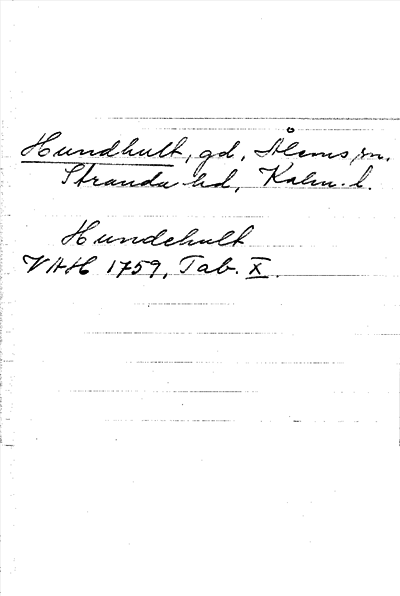 Hundhult, gd, Ålems sn.
Stranda hd, Kalm. l.
Hundehult
VAH 1759, Tab. X.